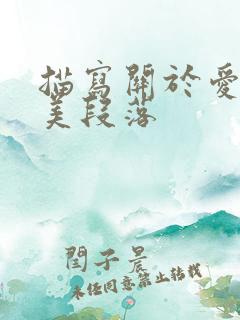 描寫關於愛
美段落
閆子晨
未经同意禁止转载